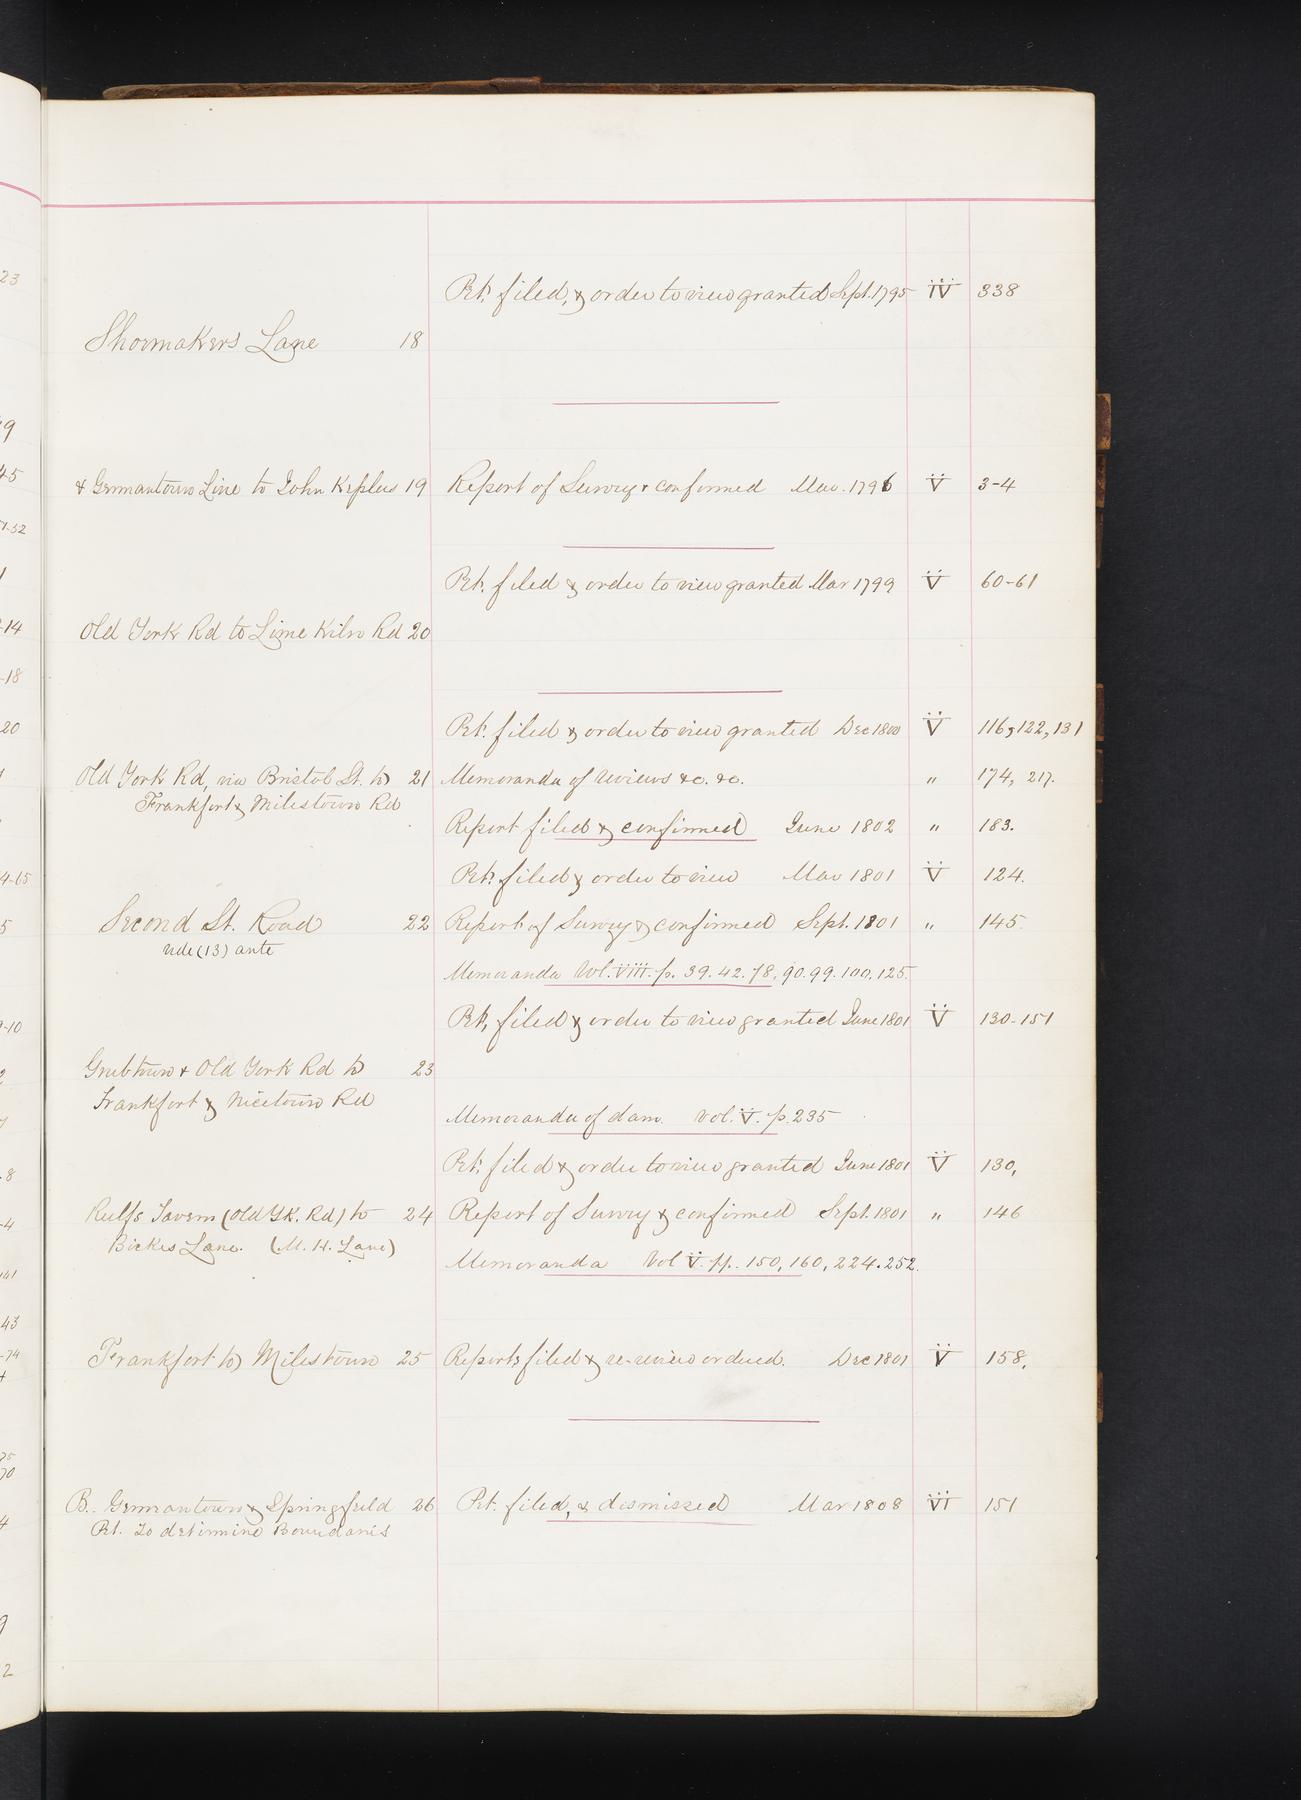 Pet. filed, & order to view granted Sept. 1795 IV 338
Shoemakers Lane 18
& Germantown Line to John Keplers 19 Report of Survey & confirmed Mar. 1796 V 3-4
Pet. filed & order to view granted Mar 1799 V 60-61
Old York Rd to Lime Kiln Rd 20
Pet. filed & order to view granted Dec 1800 V 116, 122, 131
Old York Rd, via Bristol St. to 21 Memoranda of reviews &c. &c. " 174, 217.
Frankfort & Milestown Rd
Report filed & confirmed June 1802 " 183.
Pet. filed & order to view Mar 1801 V 124.
Second St. Road 22 Report of Survey & confirmed Sept. 1801 " 145.
vide (13) ante
Memoranda Vol. VIII. p. 39. 42. 78, 90. 99. 100, 125.
Pet, filed & order to view granted June 1801 V 130-151
Grubtown & Old York Rd to 23
Frankfort & Nicetown Rd
Memoranda of dam. Vol. V. p. 235
Pet. filed & order to view granted June 1801 V 130,
Rulfs Tavern (Old Yk. Rd) to 24 Report of Survey & confirmed Sept. 1801 " 146
Bickes Lane. (M. H. Lane)
Memoranda Vol V. pp. 150, 160, 224. 252.
Frankfort to Milestown 25 Reports filed & re-review ordered. Dec 1801 V 158,
B. Germantown & Springfield 26 Pet. filed, & dismissed Mar 1808 VI 151
Pet. to determine Boundaries
23
9
45
1-52
1
-14
-18
20
4-65
5
9-10
2
7
-8
-4
141
43
-74
4
75
70
4
9
2